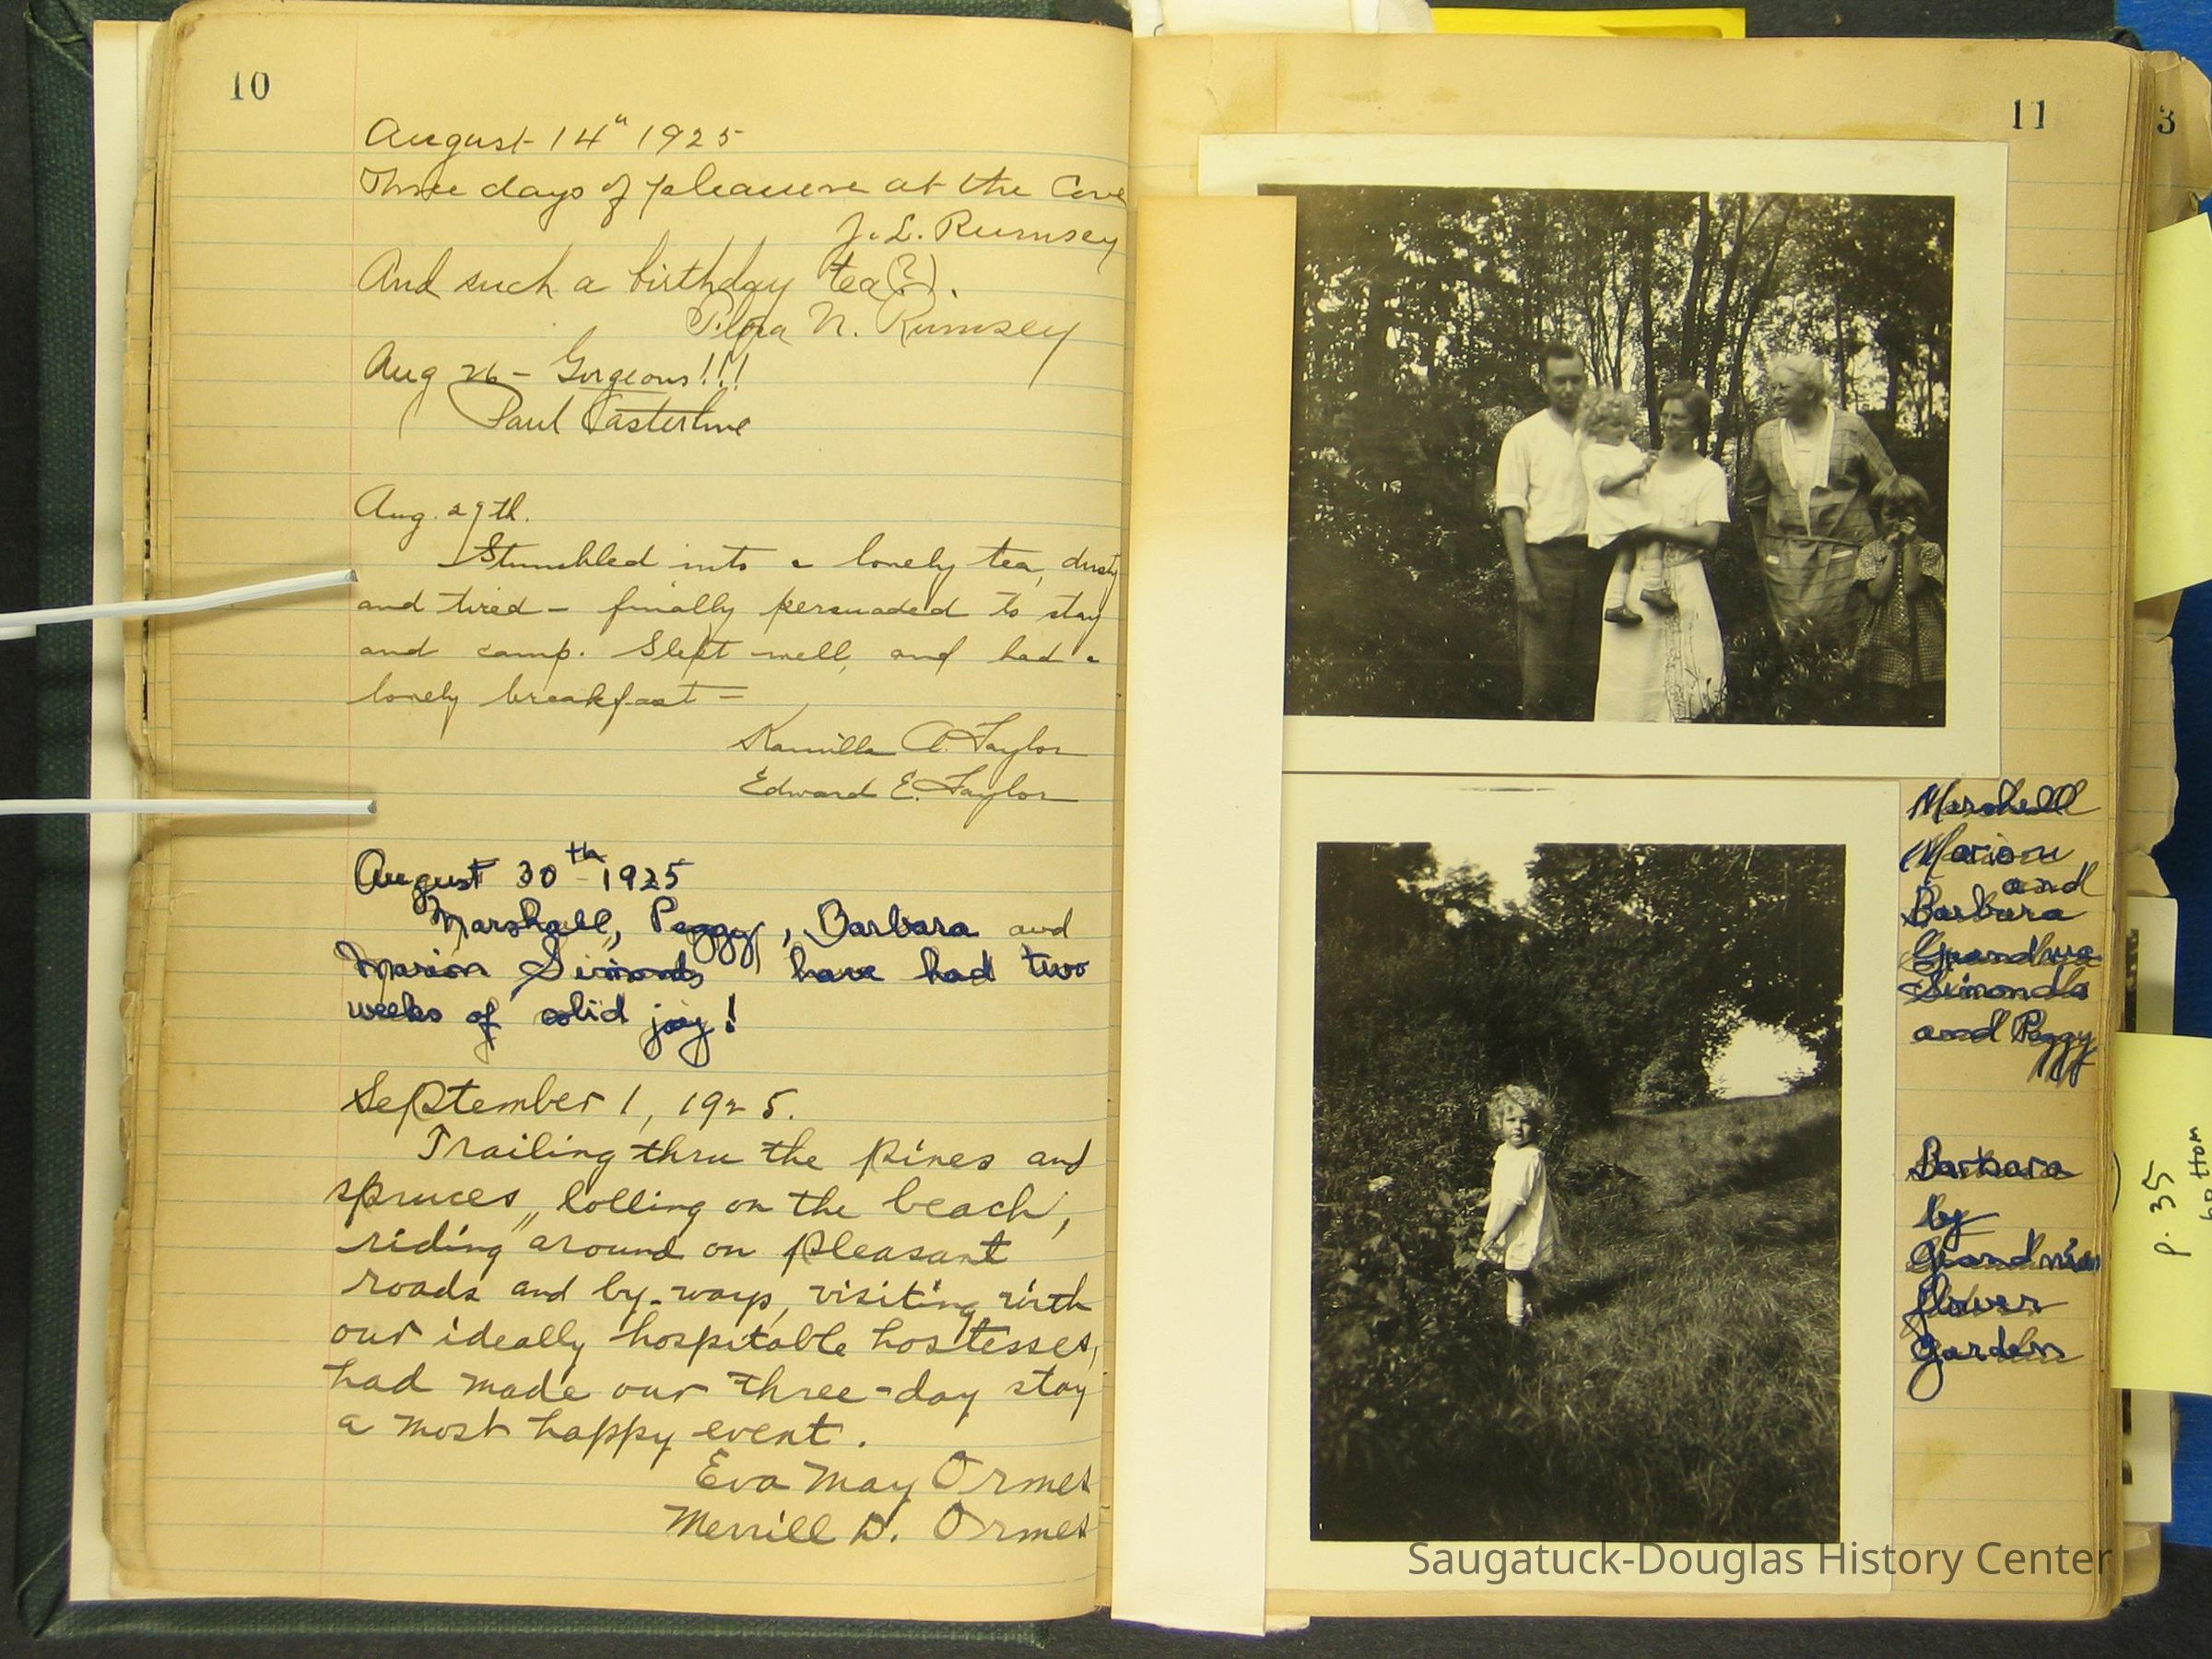 10
August 14" 1925
Three days of pleasure at the Cove
J. L. Rumsey
And such a birthday tea(?).
N. Rumsey
Aug 26 - Gorgeous!!!
Paul Casterline
Aug. 29th.
Stumbled into a lovely tea, dusty
and tired - finally persuaded to stay
and camp. Slept well, and had a
lovely breakfast -
Kamilla A. Taylor
Edward E. Taylor
August 30th 1925
Marshall, Peggy, Barbara and
Marion Simonds have had two
weeks of solid joy!
September 1, 1925.
Trailing thru the pines and
spruces, lolling on the beach,
riding around on pleasant
roads and by-ways, visiting with
our ideally hospitable hostesses,
had made our three-day stay
a most happy event.
Eva May Ormes
Merrill D. Ormes
11
3
Marshall
Marion
and
Barbara
Grandma
Simonds
and Peggy
Barbara
by
Grandma's
flower
garden
p. 35
bottom
Saugatuck-Douglas History Center